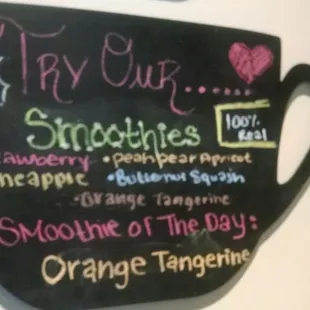 Try Our......
Smoothies
100% Real
awberry • peah pear Apricot
neapple • Butternut Squash
- Orange Tangerine
Smoothie of The Day:
Orange Tangerine